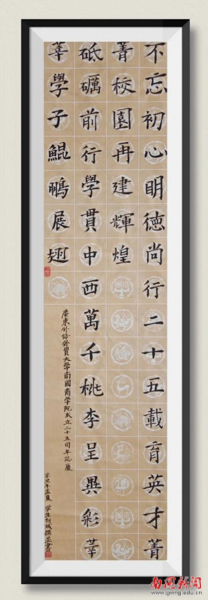 不忘初心明德尚行二十五載育英才菁
菁校園再建輝煌
砥礪前行學貫中西萬千桃李呈異彩莘
莘學子鯤鵬展翅
廣東外語外貿大學南國商學院成立二十五周年誌慶